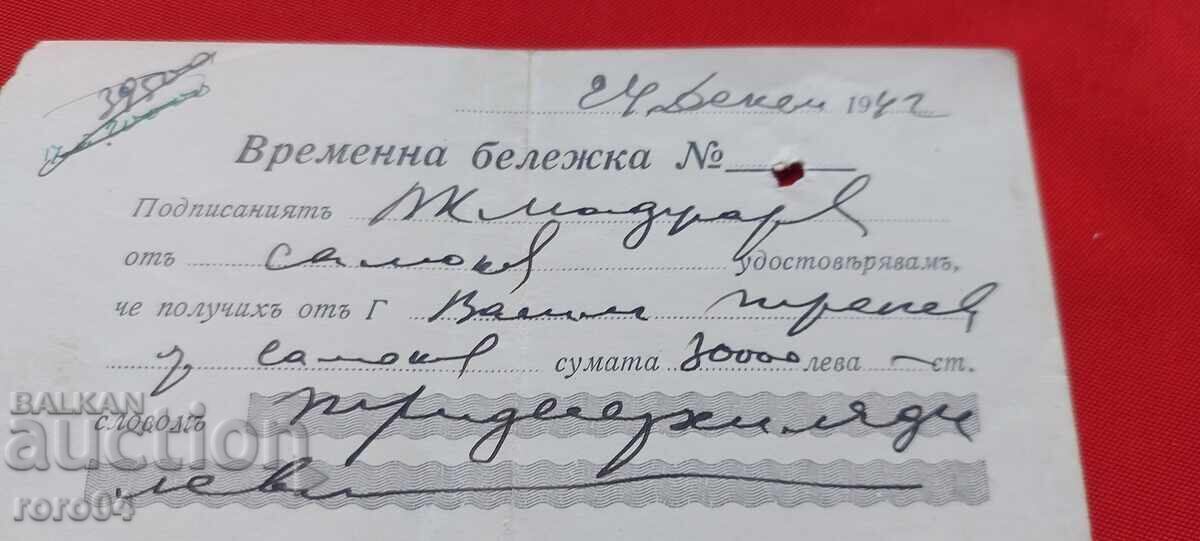 39500
24 Декем 1942
Временна бележка №
Подписаниятъ
отъ Самоков удостовѣрявамъ,
че получихъ отъ Г Васил
з Самоков сумата 30000 лева ст.
словомъ тридесет хиляди
лева
BALKAN
auction
roro94